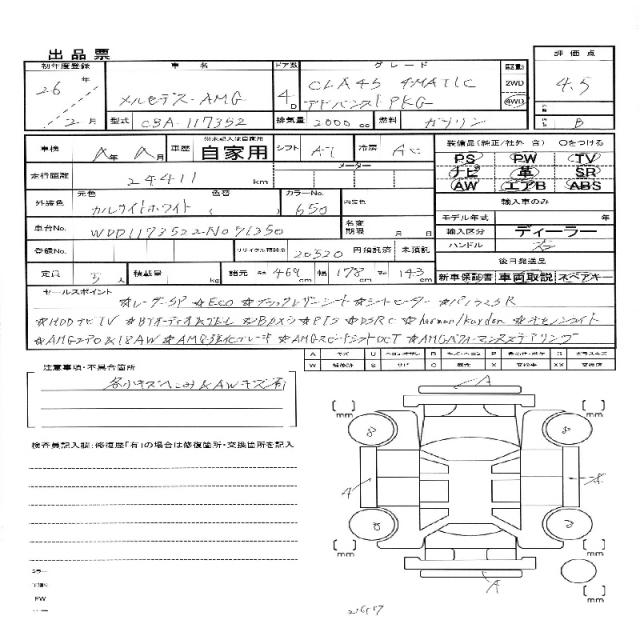 出品票
初年度登録 車名 ドア数 グレード 駆動 評価点
26年 メルセデス・AMG 4D CLA45 4MATIC 2WD 4.5
2月 アドバンストPKG 4WD
型式 CBA-117352 排気量 2000cc 燃料 ガソリン B
車検 年 月 車歴 ※未記入は自家用 自家用 シフト AT 冷房 AC 装備品(純正/社外 含) ○をつける
PS PW TV
走行距離 24411 km メーター ナビ 革 SR
AW エアB ABS
外装色 元色 カルサイトホワイト 色替 ( ) カラーNo. 650 内装色 輸入車のみ
モデル年式 年
車台No. WDD1173522-N071350 名変期限 月 日 輸入区分 ディーラー
ハンドル 右
登録No. リサイクル預託金 20520 円預託済 未預託 後日発送品
定員 5人 積載量 kg 諸元 長さ 469cm 幅 178cm 高さ 143cm 新車保証書 車両取説 スペアキー
セールスポイント
★レーダーSP ★ECO ★ブラックレザーシート ★シートヒーター ★パノラマSR
★HDDナビTV ★BTオーディオ&TEL ★Bカメラ ★PTS ★DSRC ★harman/kardon ★キセノンライト
★AMGエアロ&18AW ★AMG強化ブレーキ ★AMGスピードシフトDCT ★AMGパフォーマンスステアリング
注意事項・不具合箇所
各小キズヘコミ&AWキズ有
検査員記入欄:修復歴「有」の場合は修復箇所・交換箇所を記入
A
mm mm
A
mm mm
A
PW